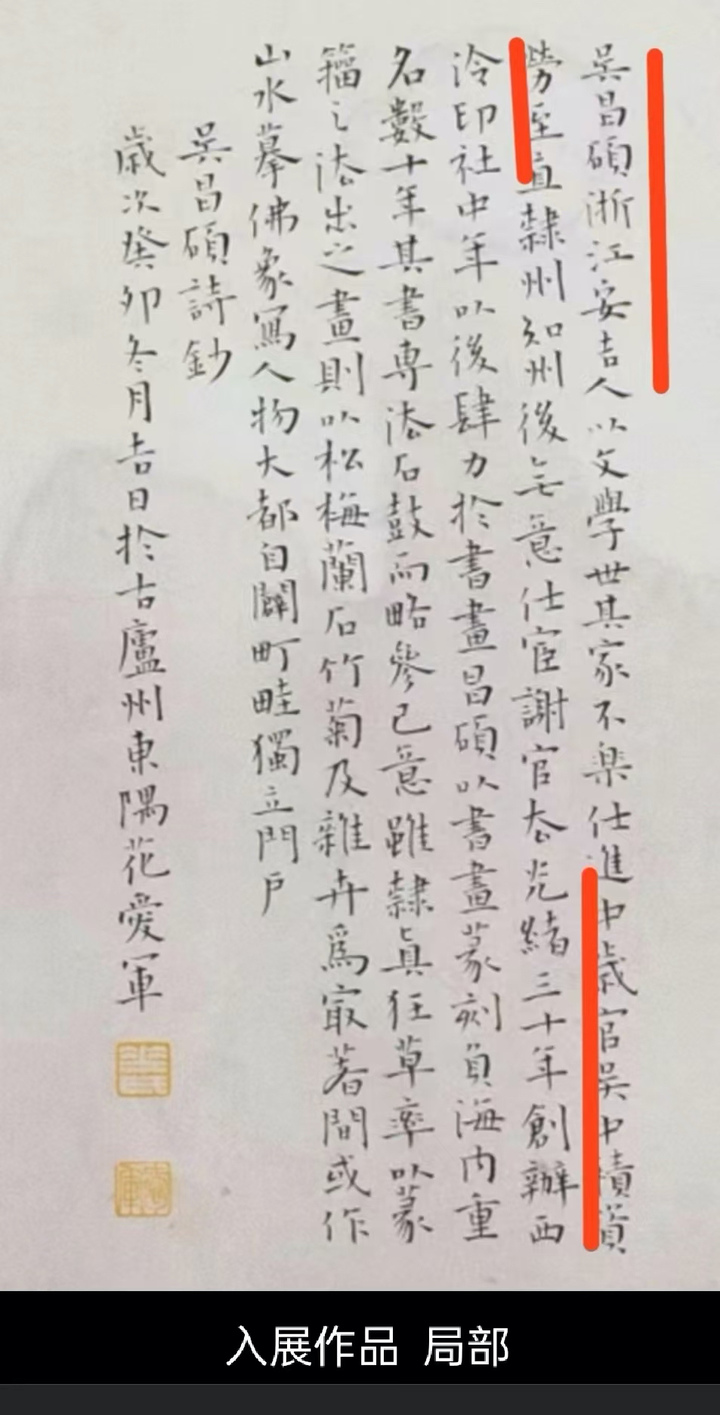 吴昌碩浙江安吉人以文學世其家不樂仕進中歲官吴中積資
勞至直隸州知州後無意仕宦謝官去光緒三十年創辦西
泠印社中年以後肆力於書畫昌碩以書畫篆刻負海内重
名數十年其書専法石鼓而略參己意雖隸真狂草率以篆
籀之法出之畫則以松梅蘭石竹菊及雜卉爲最著間或作
山水摹佛象寫人物大都自闢町畦獨立門戶
吴昌碩詩鈔
歲次癸卯冬月吉日於古廬州東隅花愛軍
入展作品 局部